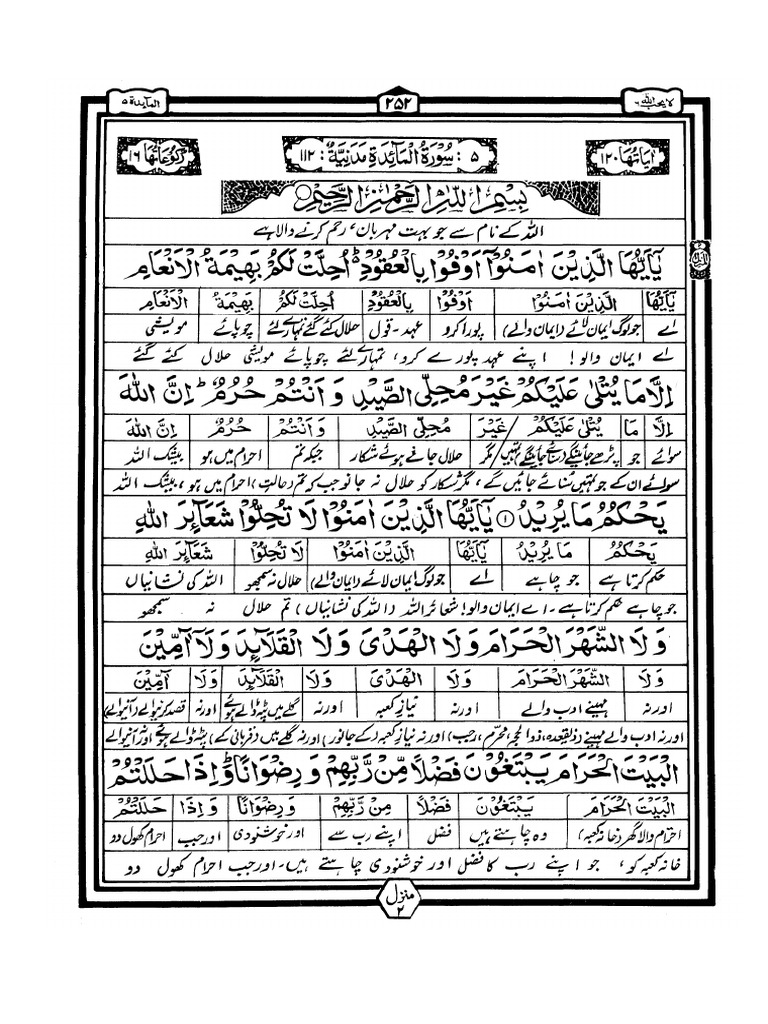 لا یحب اللہ ۶
۲۵۲
المآئدة ۵
اٰیَاتُهَا ۱۲۰
۵ : سُوْرَةُ الْمَآئِدَةِ مَدَنِيَّةٌ : ۱۱۲
رُكُوْعَاتُهَا ۱۶
بِسْمِ اللّٰهِ الرَّحْمٰنِ الرَّحِيْمِ
اللہ کے نام سے جو بہت مہربان، رحم کرنے والا ہے
يٰٓاَيُّهَا الَّذِيْنَ اٰمَنُوْٓا اَوْفُوْا بِالْعُقُوْدِ ؕ اُحِلَّتْ لَكُمْ بَهِيْمَةُ الْاَنْعَامِ
يٰٓاَيُّهَا الَّذِيْنَ اٰمَنُوْٓا اَوْفُوْا بِالْعُقُوْدِ اُحِلَّتْ لَكُمْ بَهِيْمَةُ الْاَنْعَامِ
اے جو لوگ ایمان لائے (ایمان والے) پورا کرو عہد-قول حلال کئے گئے تمہارے لئے چوپائے مویشی
اے ایمان والو! اپنے عہد پورے کرو، تمہارے لئے چوپائے مویشی حلال کئے گئے
اِلَّا مَا يُتْلٰى عَلَيْكُمْ غَيْرَ مُحِلِّى الصَّيْدِ وَاَنْتُمْ حُرُمٌ ؕ اِنَّ اللّٰهَ
اِلَّا مَا يُتْلٰى عَلَيْكُمْ / غَيْرَ مُحِلِّى الصَّيْدِ وَاَنْتُمْ حُرُمٌ اِنَّ اللّٰهَ
سوائے جو پڑھے جائینگے (سنائے جائینگے) تمہیں / مگر حلال جانے ہوئے شکار جبکہ تم احرام میں ہو بیشک اللہ
سوائے ان کے جو تمہیں سنائے جائیں گے، مگر شکار کو حلال نہ جانو جب کہ تم (حالتِ) احرام میں ہو، بیشک اللہ
يَحْكُمُ مَا يُرِيْدُ ۱ يٰٓاَيُّهَا الَّذِيْنَ اٰمَنُوْا لَا تُحِلُّوْا شَعَآئِرَ اللّٰهِ
يَحْكُمُ مَا يُرِيْدُ يٰٓاَيُّهَا الَّذِيْنَ اٰمَنُوْا لَا تُحِلُّوْا شَعَآئِرَ اللّٰهِ
حکم کرتا ہے جو چاہے اے جو لوگ ایمان لائے (ایمان والے) حلال نہ سمجھو اللہ کی نشانیاں
جو چاہے حکم کرتا ہے۔ اے ایمان والو! شعائر اللہ (اللہ کی نشانیاں) تم حلال نہ سمجھو
وَلَا الشَّهْرَ الْحَرَامَ وَلَا الْهَدْىَ وَلَا الْقَلَآئِدَ وَلَآ اٰمِّيْنَ
وَلَا الشَّهْرَ الْحَرَامَ وَلَا الْهَدْىَ وَلَا الْقَلَآئِدَ وَلَآ اٰمِّيْنَ
اور نہ مہینے ادب والے اور نہ نیازِ کعبہ اور نہ گلے میں پٹہ ڈالے ہوئے اور نہ قصد کرنیوالے (آنیوالے)
اور نہ ادب والے مہینے (ذیقعدہ، ذوالحجہ، محرم، رجب) اور نہ نیازِ کعبہ (کے جانور) اور نہ گلے میں (قربانی کے) پٹے ڈالے ہوئے، اور نہ آنیوالے
الْبَيْتَ الْحَرَامَ يَبْتَغُوْنَ فَضْلًا مِّنْ رَّبِّهِمْ وَرِضْوَانًا ؕ وَاِذَا حَلَلْتُمْ
الْبَيْتَ الْحَرَامَ يَبْتَغُوْنَ فَضْلًا مِّنْ رَّبِّهِمْ وَرِضْوَانًا وَاِذَا حَلَلْتُمْ
احترام والا گھر (خانہ کعبہ) وہ چاہتے ہیں فضل اپنے رب سے اور خوشنودی اور جب احرام کھول دو
خانہ کعبہ کو، جو اپنے رب کا فضل اور خوشنودی چاہتے ہیں۔ اور جب احرام کھول دو
منزل ۲